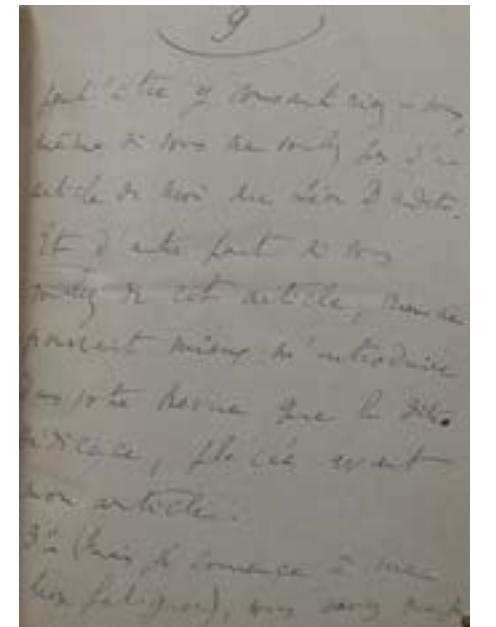 9
peut'être y consentiriez-vous,
même si vous ne vouliez pas d'un
article de moi sur Léon Daudet.
Et d'autre part si vous
vouliez de cet article, rien ne
pourrait mieux m'introduire
dans votre Revue que la
, placée avant
mon article.
(mais je commence à me
fatiguer), vous